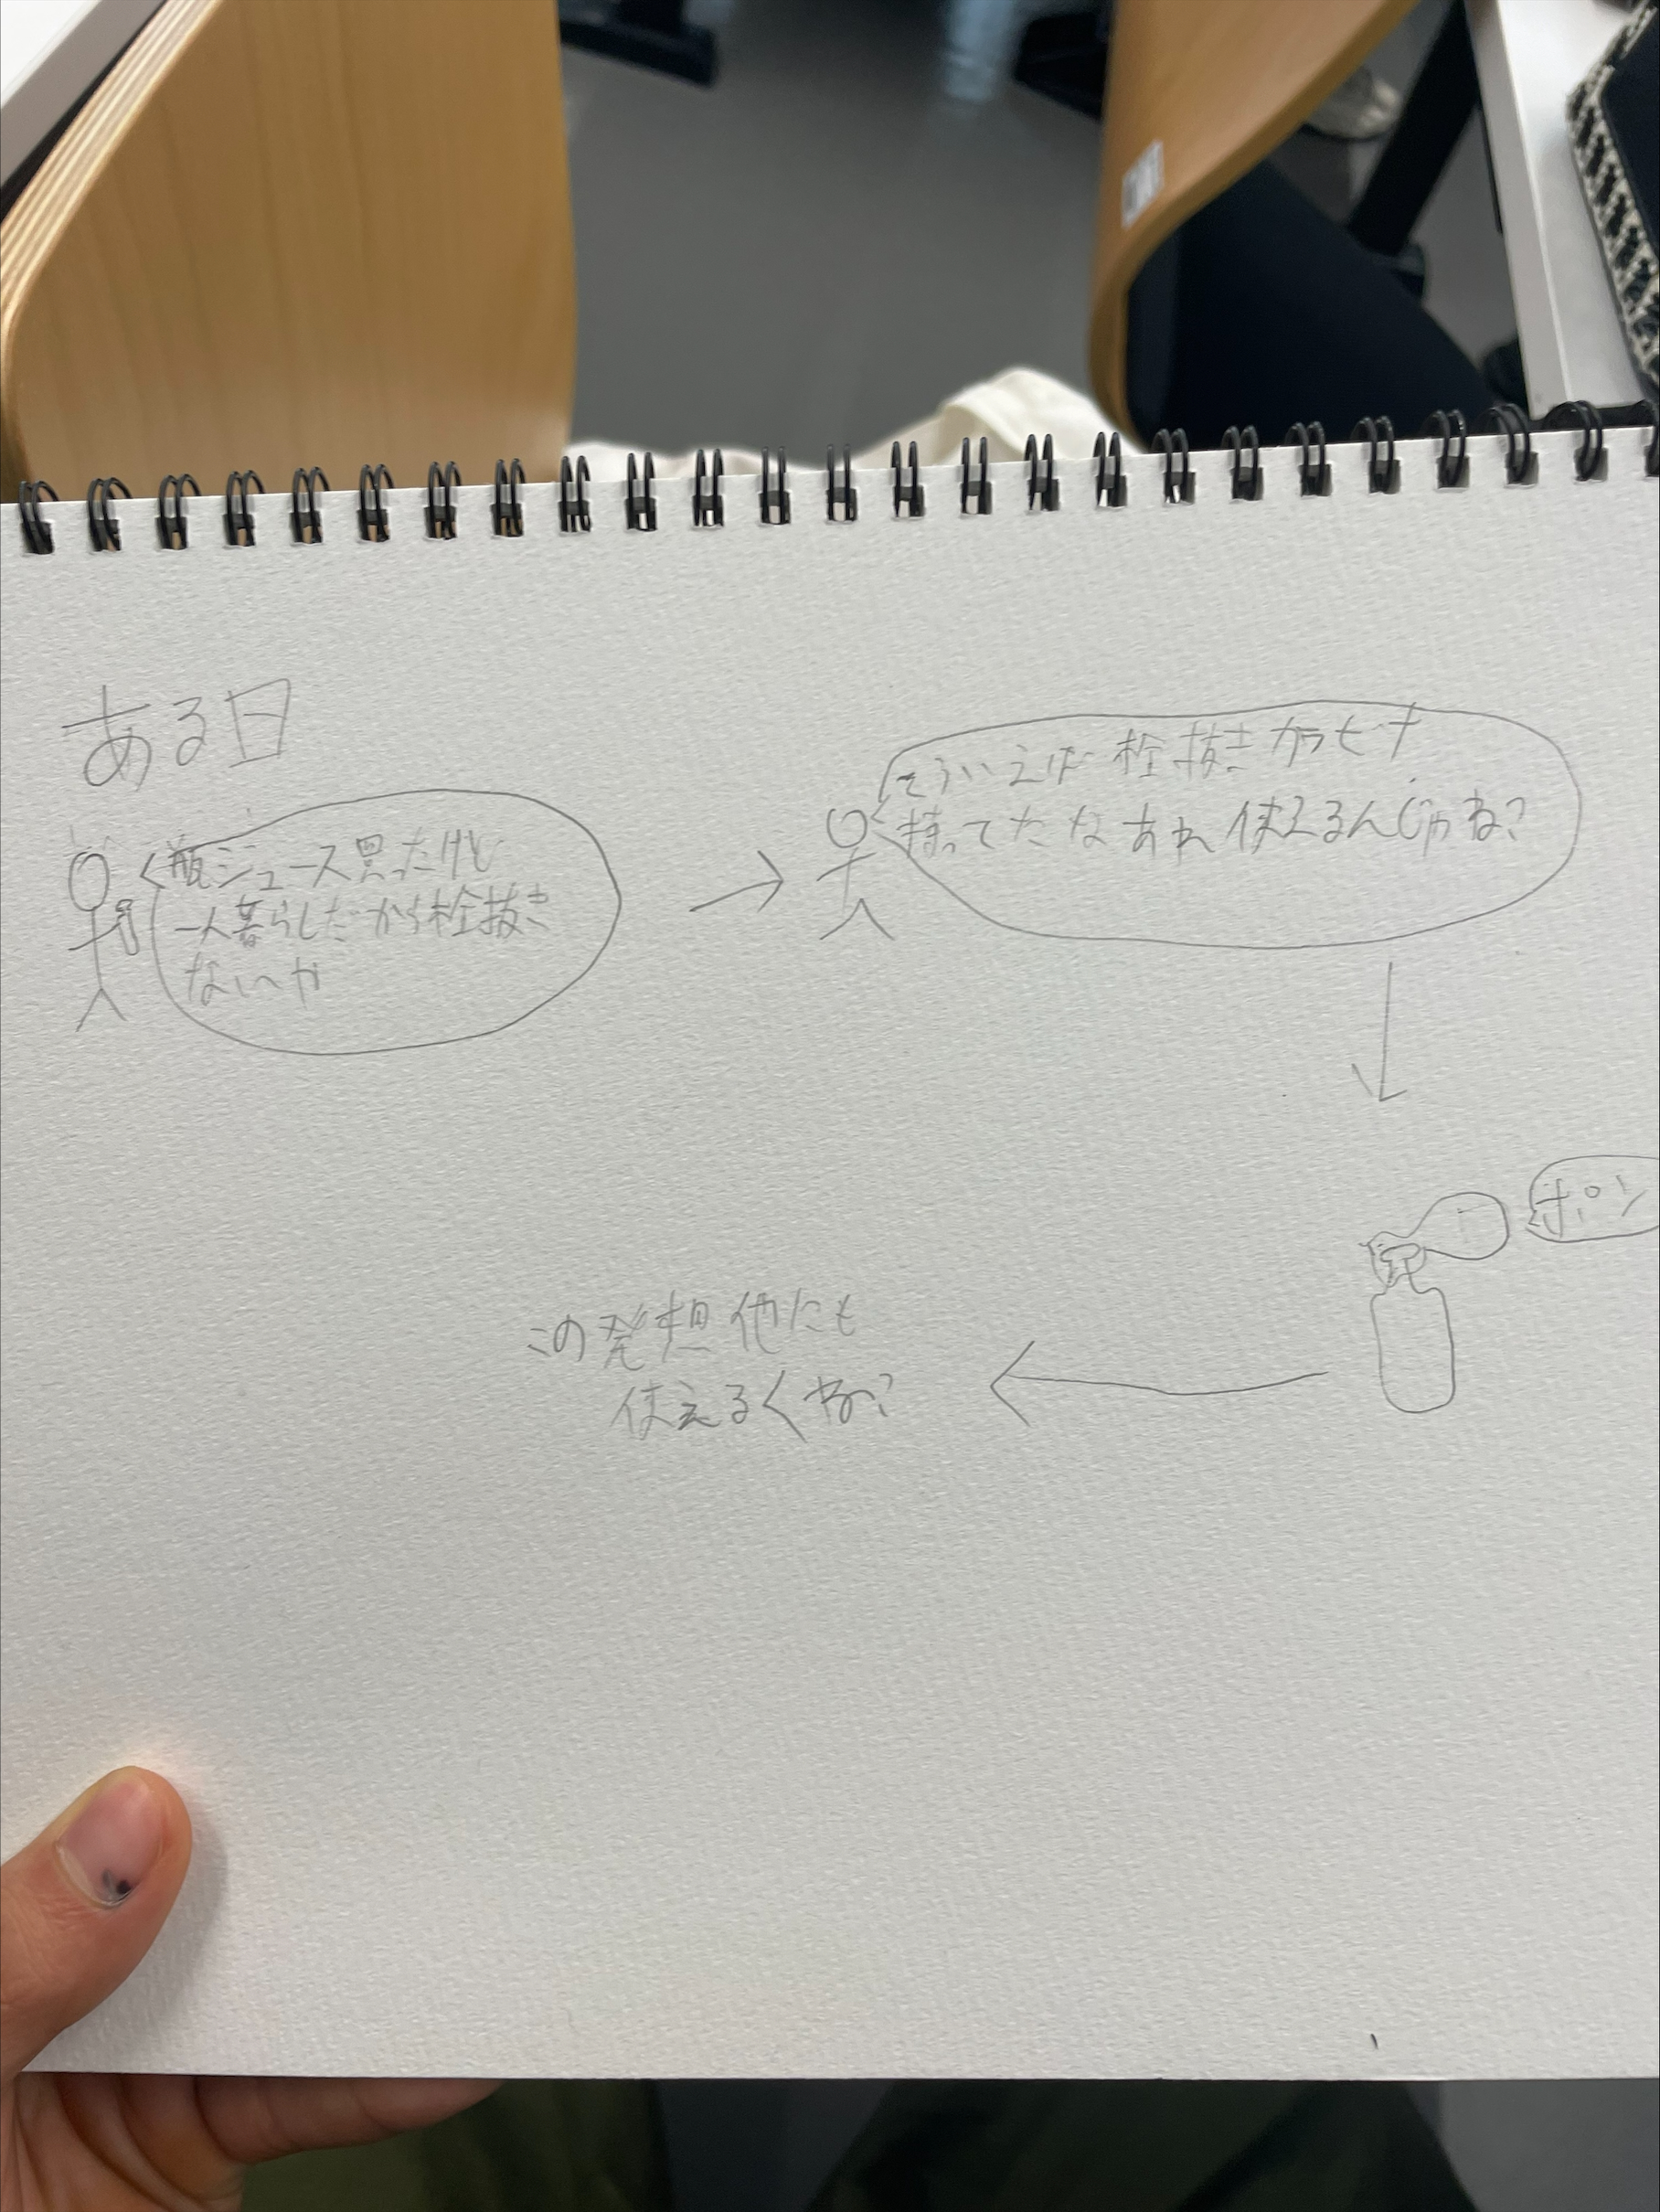 ある日
瓶ジュース買ったけど
一人暮らしだから栓抜き
ないや
そういえば栓抜きガラビナ
持ってたなあれ使えるんじゃね?
ポン
この発想他にも
使えるくね?